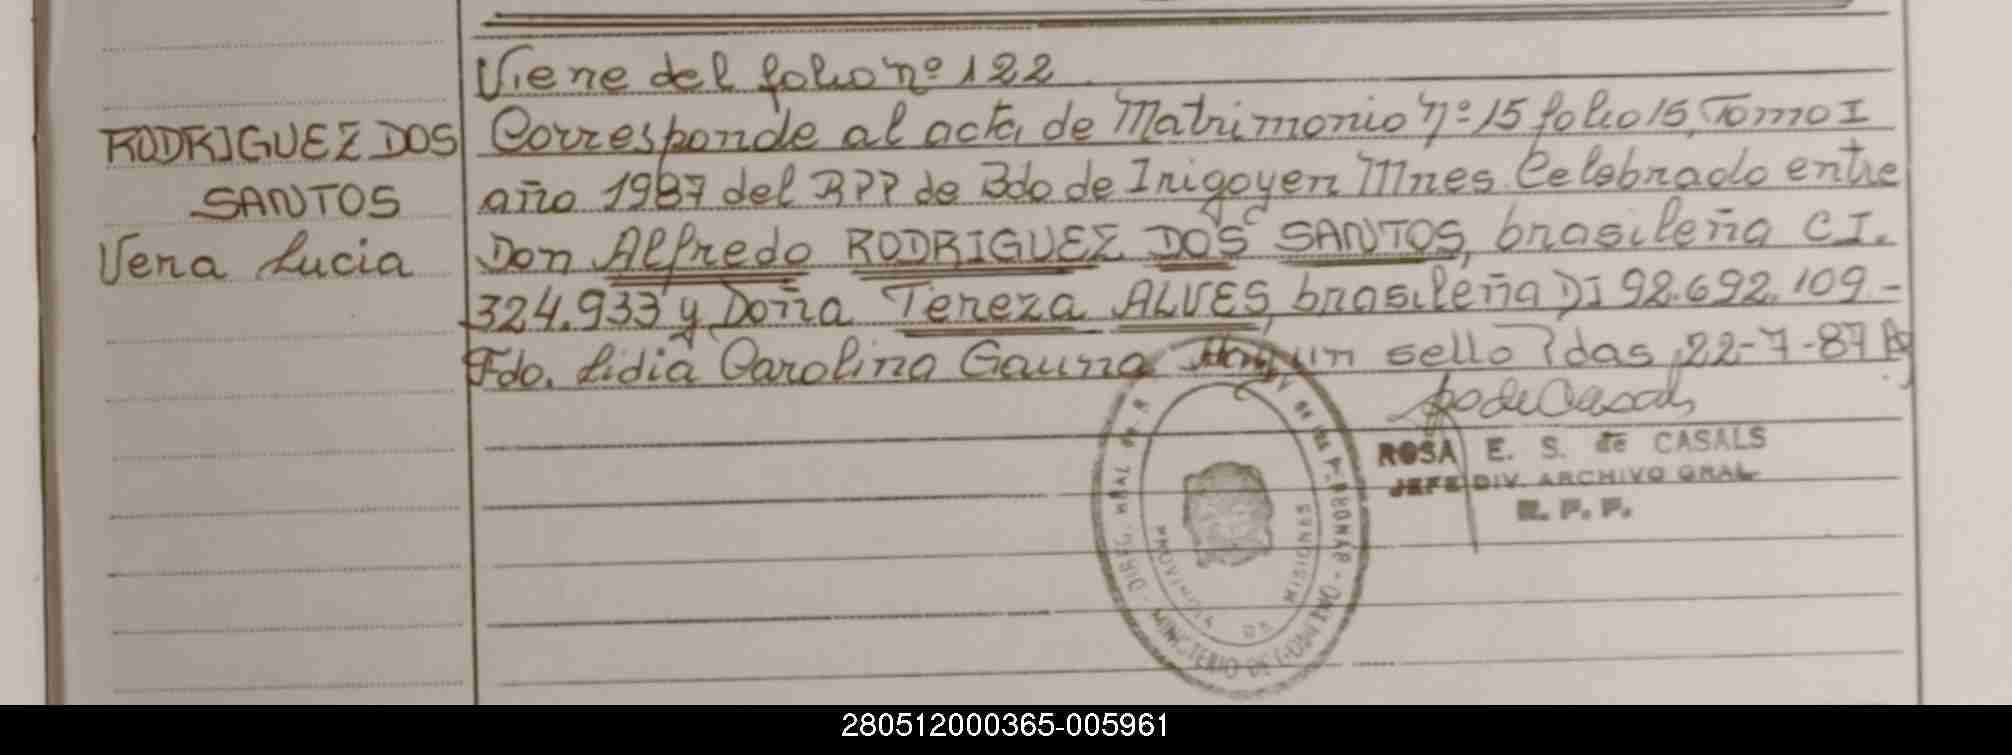 Viene del folio nº 122
RODRIGUEZ DOS
SANTOS
Vera Lucia
Corresponde al acta de Matrimonio nº 15 folio 15, Tomo I
año 1987 del RPP de Bdo de Irigoyen Mnes. Celebrado entre
Don Alfredo RODRIGUEZ DOS SANTOS, brasileña CI.
324.933 y Doña Tereza ALVES, brasileña DI 92.692.109.-
Fdo. Lidia Carolina Gauna Hay un sello Pdas, 22-7-87
ROSA E. S. de CASALS
JEFE DIV. ARCHIVO GRAL
R. P. P.
DIR. GRAL DE R DE LAS PERSONAS
MINISTERIO DE GOBIERNO
PROVINCIA DE MISIONES
280512000365-005961